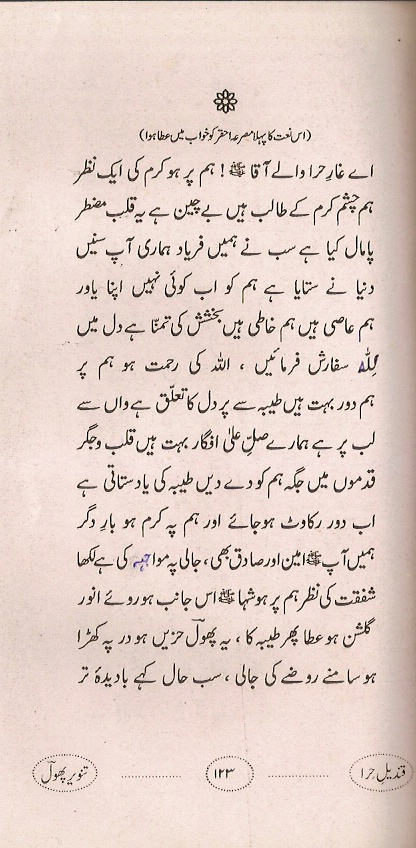 (اس نعت کا پہلا مصرعہ احقر کو خواب میں عطا ہوا)
اے غارِ حرا والے آقا ﷺ ! ہم پر ہو کرم کی ایک نظر
ہم چشمِ کرم کے طالب ہیں بے چین ہے یہ قلب مضطر
پامال کیا ہے سب نے ہمیں فریاد ہماری آپ سنیں
دنیا نے ستایا ہے ہم کو اب کوئی نہیں اپنا یاور
ہم عاصی ہیں ہم خاطی ہیں بخشش کی تمنّا ہے دل میں
لِلّٰہ سفارش فرمائیں ، اللہ کی رحمت ہو ہم پر
ہم دور بہت ہیں طیبہ سے پر دل کا تعلّق ہے واں سے
لب پر ہے ہمارے صلِّ علیٰ افگار بہت ہیں قلب و جگر
قدموں میں جگہ ہم کو دے دیں طیبہ کی یاد ستاتی ہے
اب دور رکاوٹ ہو جائے اور ہم پہ کرم ہو بارِ دگر
ہیں آپ ﷺ امین اور صادق بھی ، جالی پہ مواجہہ کی ہے لکھا
شفقت کی نظر ہم پر ہو شہا ﷺ اس جانب ہو روئے انور
گلشن ہو عطا پھر طیبہ کا ، یہ پھولؔ حزیں ہو در پہ کھڑا
ہو سامنے روضے کی جالی ، سب حال کہے با دیدۂ تر
قندیلِ حرا ۱۲۳ تنویر پھولؔ